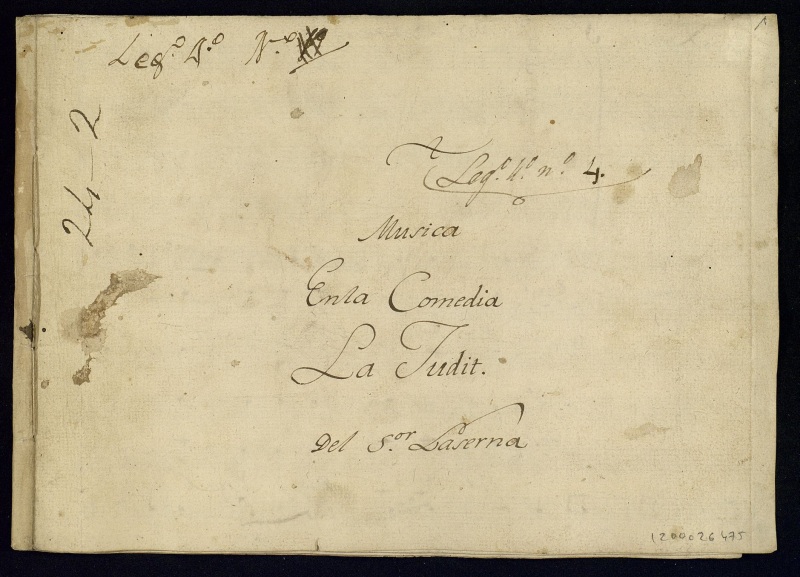 Leg.º 1.º N.º
24-2
Leg.º 1.º n.º 4.
Musica
Enla Comedia
La Judit.
Del S.or Laserna
1200026475